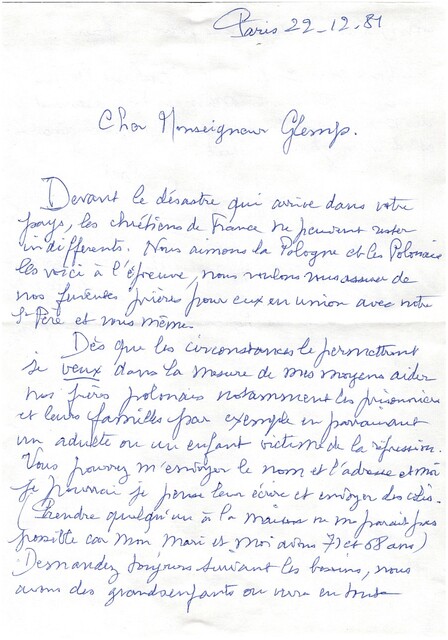 Paris 22-12-81
Cher Monseigneur Glemp.
Devant le désastre qui arrive dans votre
pays, les chrétiens de France ne peuvent rester
indifférents. Nous aimons la Pologne et les Polonais
les voici à l'épreuve, nous voulons vous assurer de
nos prières pour eux en union avec notre
St Père et vous même.
Dès que les circonstances le permettront
je veux dans la mesure de mes moyens aider
nos frères polonais notamment les prisonniers
et leurs familles par exemple en parrainant
un adulte ou un enfant victime de la répression.
Vous pourrez m'envoyer le nom et l'adresse et moi
je pourrai je pense leur écrire et envoyer des colis.
(Prendre quelqu'un à la maison ne me parait pas
possible car mon mari et moi avons 71 et 68 ans)
Demandez toujours suivant les besoins, nous
avons des grands enfants